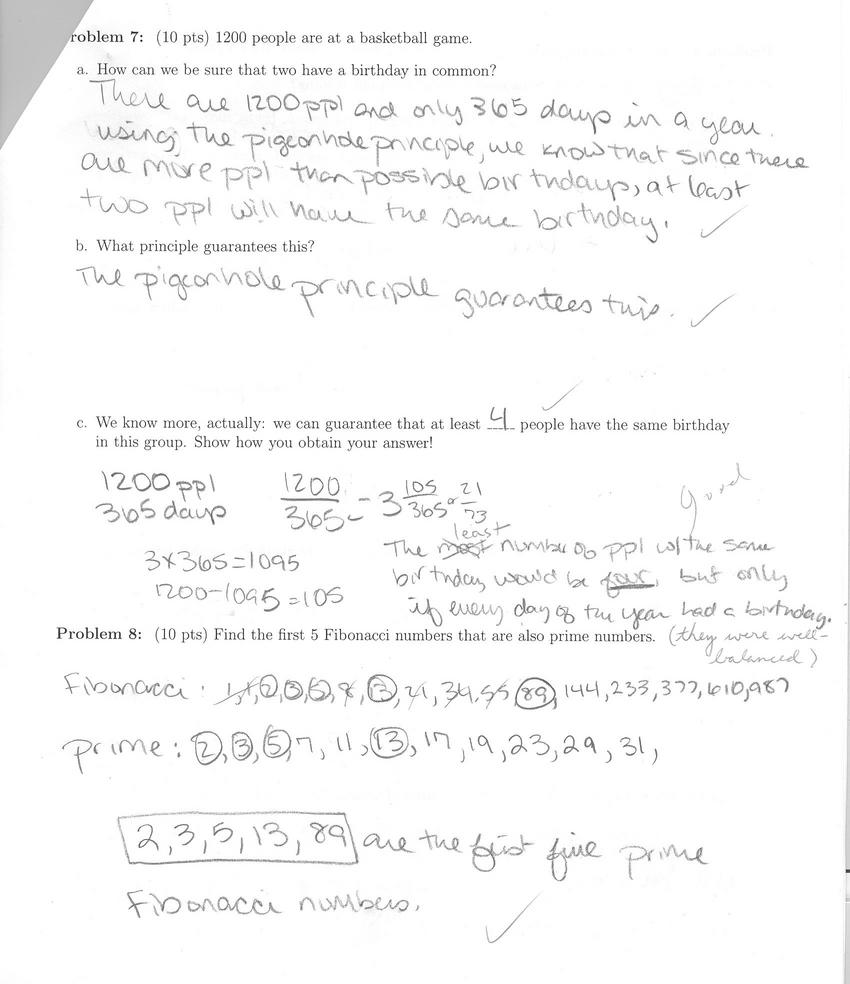 roblem 7: (10 pts) 1200 people are at a basketball game.
a. How can we be sure that two have a birthday in common?
There are 1200 ppl and only 365 days in a year.
using the pigeonhole principle, we know that since there
are more ppl than possible birthdays, at least
two ppl will have the same birthday.
b. What principle guarantees this?
The pigeonhole principle guarantees this.
c. We know more, actually: we can guarantee that at least 4 people have the same birthday
in this group. Show how you obtain your answer!
1200 ppl
365 days
1200/365 = 3 105/365 or 21/73
3×365=1095
1200-1095=105
good
least
The most number of ppl w/ the same
birthday would be four, but only
if every day of the year had a birthday.
(they were well-
balanced)
Problem 8: (10 pts) Find the first 5 Fibonacci numbers that are also prime numbers.
Fibonacci: 1,1,2,3,5,8,13,21,34,55,89,144,233,377,610,987
prime: 2,3,5,7,11,13,17,19,23,29,31,
2,3,5,13,89 are the first five prime
Fibonacci numbers.